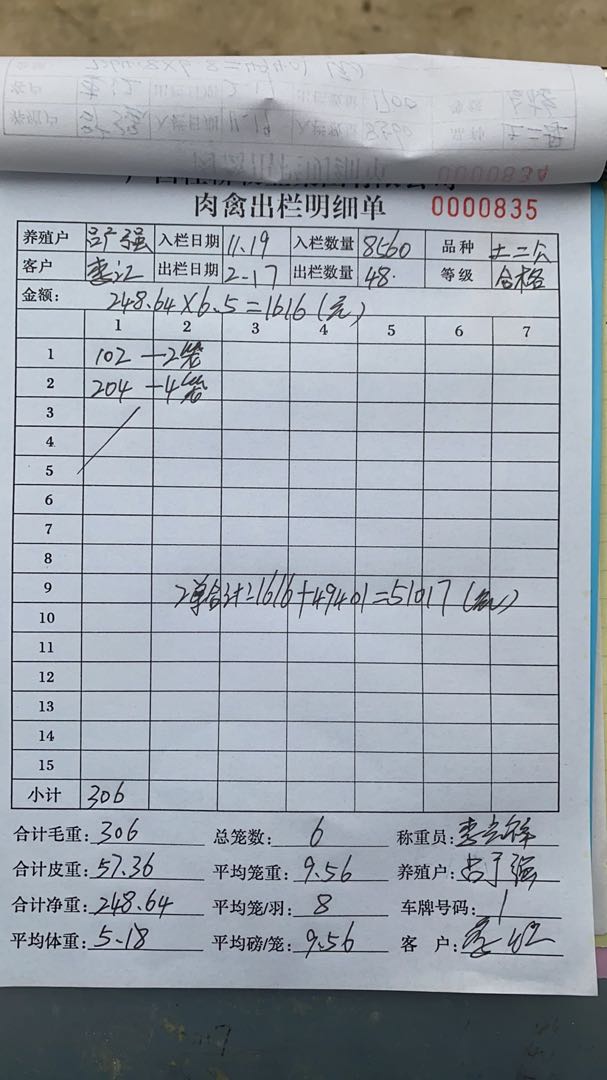 肉禽出栏明细单 0000835
养殖户 入栏日期 11.19 入栏数量 8560 品种 土二公
客户 李江 出栏日期 2-17 出栏数量 48. 等级 合格
金额: 248.64×6.5=1616(元)
1 2 3 4 5 6 7
1 102 —2笼
2 204 —4笼
3
4
5
6
7
8
9 2单合计=1616+49401=51017(元)
10
11
12
13
14
15
小计 306
合计毛重: 306 总笼数: 6 称重员:
合计皮重: 57.36 平均笼重: 9.56 养殖户:
合计净重: 248.64 平均笼/羽: 8 车牌号码: 1
平均体重: 5.18 平均磅/笼: 9.56 客 户: